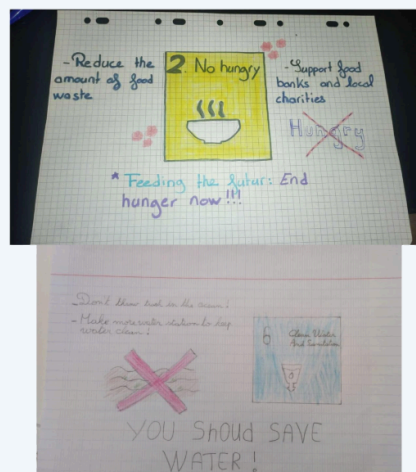 -Reduce the
amount of food
waste
2. No hungry
-Support food
banks and local
charities
Hungry
* Feeding the futur: End
hunger now!!!
-Don't throw trash in the ocean!
-Make more water stations to keep
water clean!
6 Clean Water
And Sanitation
YOU Shoud SAVE
WATER!